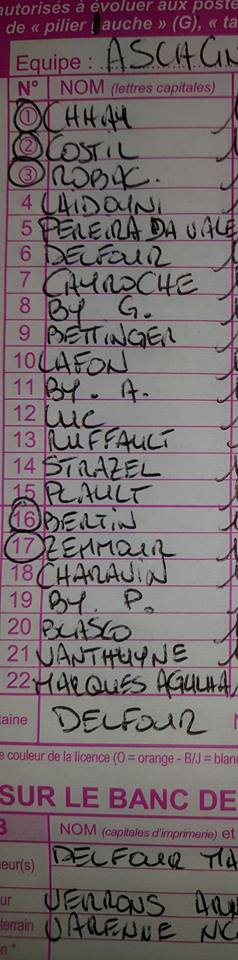 autorisés à évoluer aux poste
de « pilier gauche » (G), « ta
Equipe : ASCACIN
N° NOM (lettres capitales)
1 CHHAY
2 COSTIL
3 ROBAC.
4 LAIDOUNI
5 PEREIRA DA VALE
6 DELFOUR
7 CAYROCHE
8 BY G.
9 BETTINGER
10 LAFON
11 BY. A.
12 LUC
13 RUFFAULT
14 STRAZEL
15 PLAULT
16 BERTIN
17 ZEMMOUR
18 CHARAVIN
19 BY. P.
20 BLASCO
21 VANTHUYNE
22 MARQUES AGULHA
taine DELFOUR
e couleur de la licence (O = orange - B/J = blanc
SUR LE BANC DE
NOM (capitales d'imprimerie) et
eur(s) DELFOUR MA
ur VERRONS ARN
terrain VARENNE NC
on *